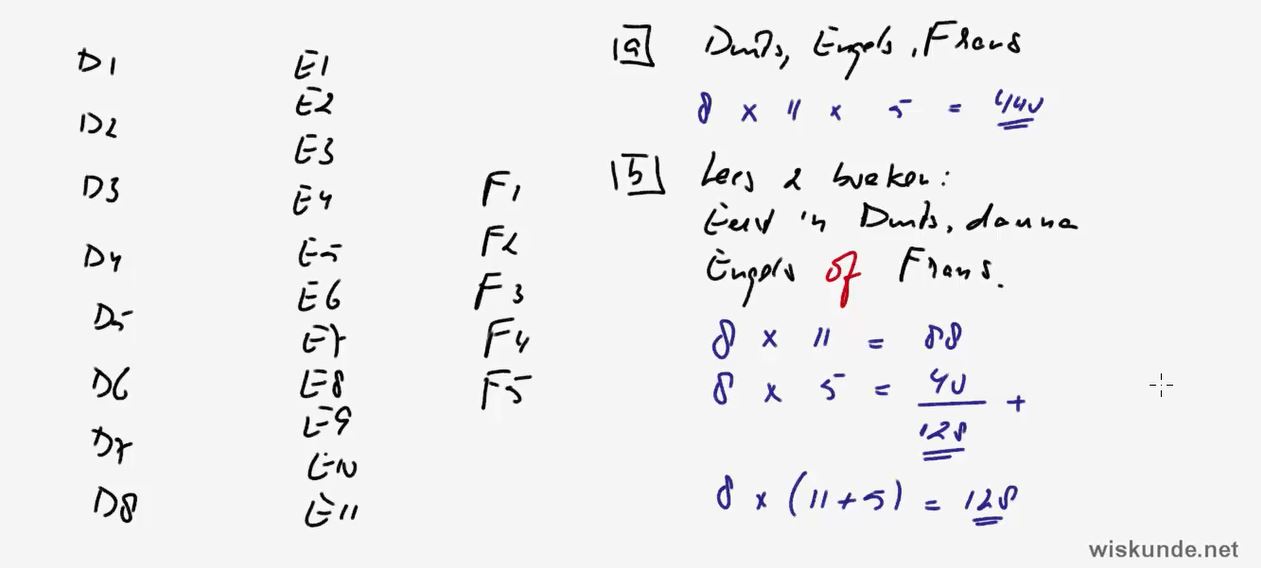 D1
D2
D3
D4
D5
D6
D7
D8
E1
E2
E3
E4
E5
E6
E7
E8
E9
E10
E11
F1
F2
F3
F4
F5
a Duits, Engels, Frans
8 x 11 x 5 = 440
b Lees 2 boeken:
Eerst in Duits, daarna
Engels of Frans.
8 x 11 = 88
8 x 5 = 40 +
128
8 x (11+5) = 128
wiskunde.net